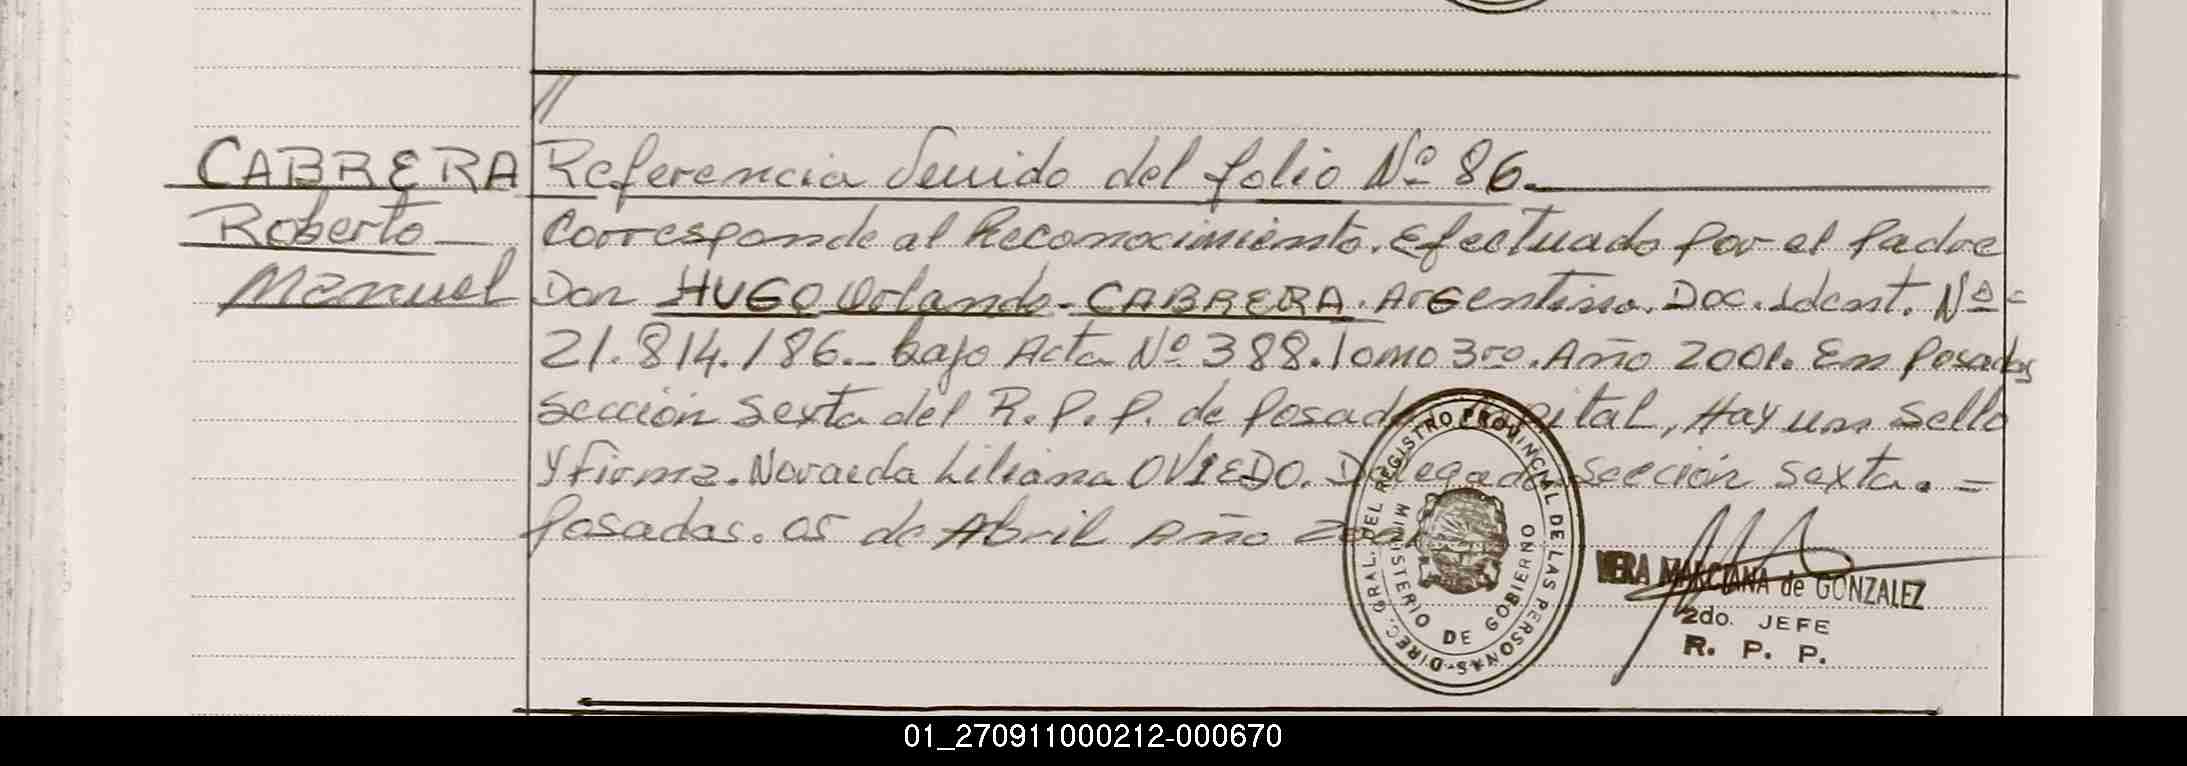 CABRERA Referencia Venido del folio Nº 86.
Roberto Corresponde al Reconocimiento. Efectuado por el Padre
Manuel Don HUGO Orlando - CABRERA. Argentino. Doc. Ident. Nº =
21.814.186._ bajo Acta Nº 388. Tomo 3ro. Año 2001. En Posadas
Sección Sexta del R. P. P. de Posadas Capital, Hay un Sello
y firma. Liliana OVIEDO. Delegada Sección Sexta. =
Posadas. 05 de Abril Año
DIREC. GRAL. DEL REGISTRO PROVINCIAL DE LAS PERSONAS
MINISTERIO DE GOBIERNO
VERA MARCIANA de GONZALEZ
2do. JEFE
R. P. P.
01_270911000212-000670